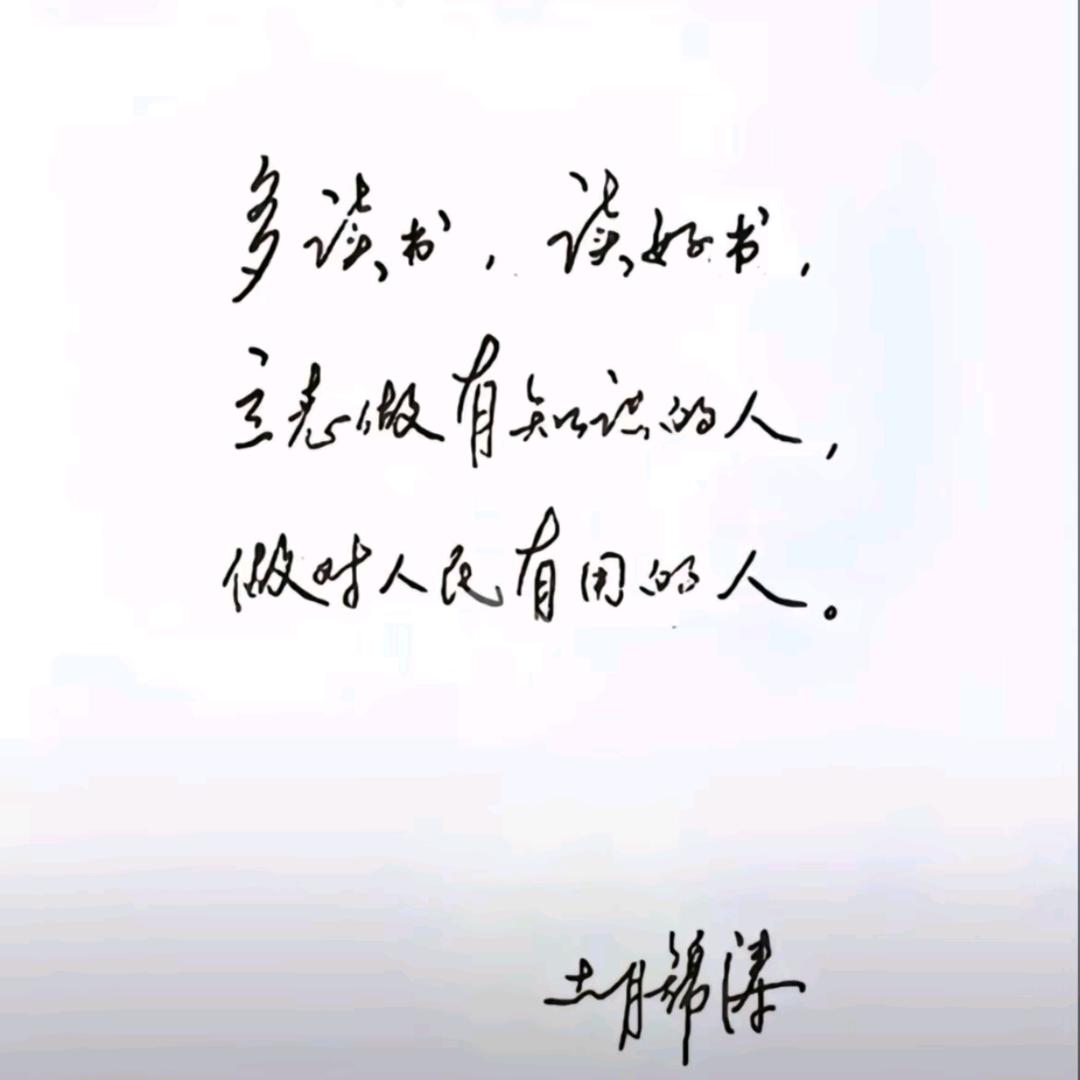 多读书，读好书，
立志做有知识的人，
做对人民有用的人。
胡锦涛